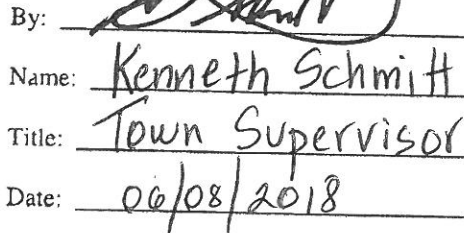 By:
Name: Kenneth Schmitt
Title: Town Supervisor
Date: 06/08/2018